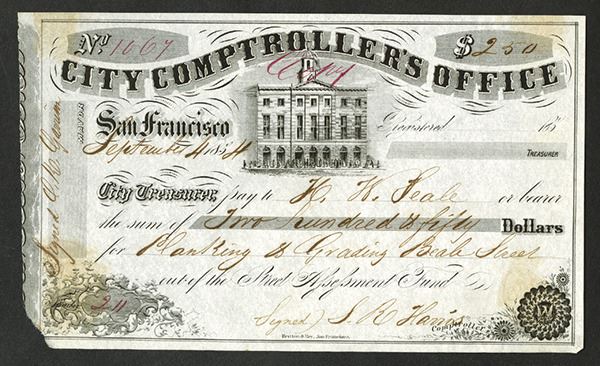 No. 1067
$ 250
CITY COMPTROLLER'S OFFICE
Copy
San Francisco
September 4 1854
Registered 185
TREASURER
MAYOR
Signed
City Treasurer, pay to H. W. Seale or bearer
the sum of Two hundred & fifty Dollars
for Planking & Grading Beale Street
out of the Street Assessment Fund
24
Signed S R Harris
Comptroller
Britton & Rey, San Francisco.